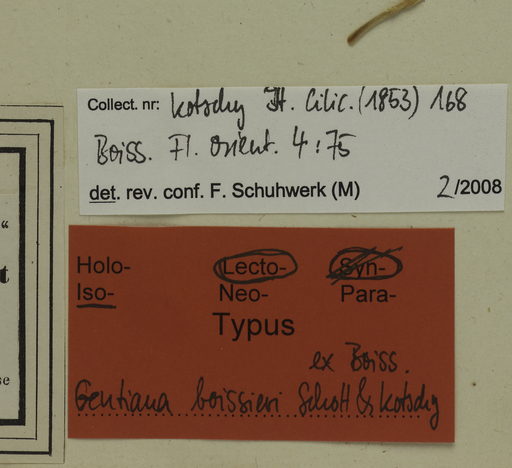 Collect. nr: Kotschy It. Cilic. (1853) 168
Boiss. Fl. Orient. 4:75
det. rev. conf. F. Schuhwerk (M) 2/2008
Holo- Lecto- Syn-
Iso- Neo- Para-
Typus
ex Boiss.
Gentiana boissieri Schott & Kotschy